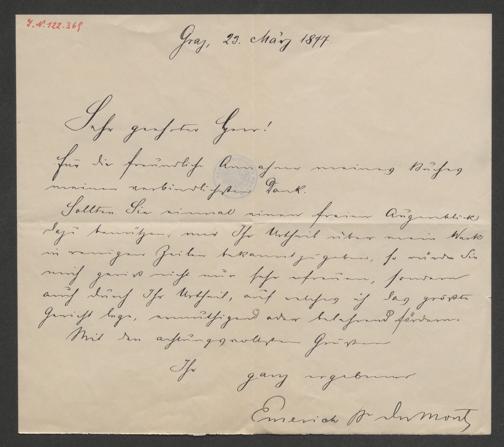 I.N. 122.369
Graz, 23. März 1877
Sehr geehrter Herr!
Für die freundliche Annahme meines Buches
meinen verbindlichsten Dank.
Sollten Sie einmal einen freien Augenblick
dazu benützen, mir Ihr Urtheil über mein Werk
in wenigen Zeilen bekannt zu geben, so würden Sie
mich gewiß nicht nur sehr erfreuen, sondern
auch durch Ihr Urtheil, auf welches ich das größte
Gewicht lege, ermuthigend oder belehrend fördern.
Mit den achtungsvollsten Grüßen
Ihr ganz ergebener
Emerich du Mont